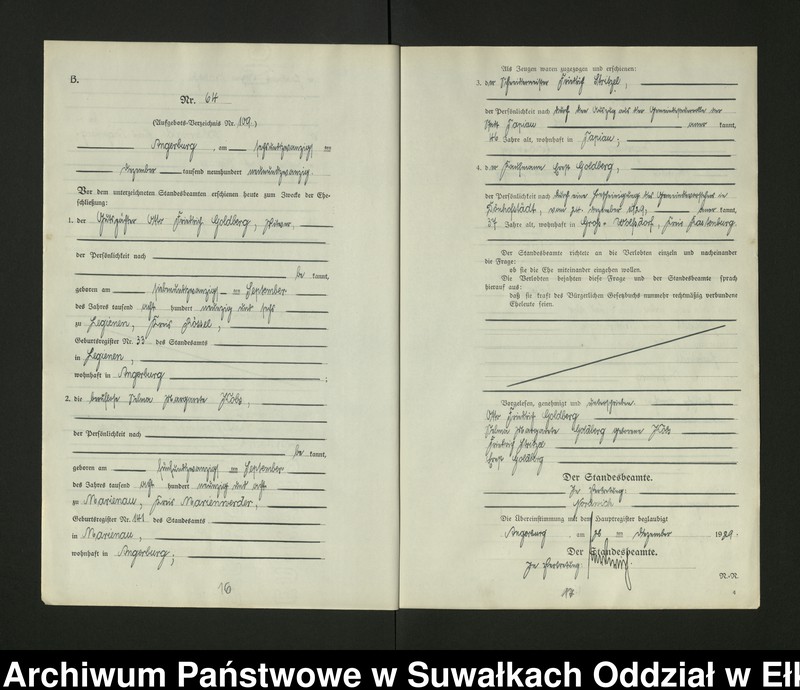 B.
Nr. 64
(Aufgebots-Verzeichnis Nr. 102.)
Angerburg, am sechsundzwanzig ten
Dezember tausend neunhundert neunundzwanzig.
Vor dem unterzeichneten Standesbeamten erschienen heute zum Zwecke der Ehe-
schließung:
1. der Otto Friedrich Goldberg,
der Persönlichkeit nach
be kannt,
geboren am siebenundzwanzig ten September
des Jahres tausend acht hundert neunzig und sechs
zu Legienen, Kreis Rössel,
Geburtsregister Nr. 33 des Standesamts
in Legienen,
wohnhaft in Angerburg ;
2. die berufslose Selma Margarete
der Persönlichkeit nach
be kannt,
geboren am fünfundzwanzig ten September
des Jahres tausend acht hundert neunzig und acht
zu Marienau, Kreis Marienwerder,
Geburtsregister Nr. 141 des Standesamts
in Marienau,
wohnhaft in Angerburg;
16
Als Zeugen waren zugezogen und erschienen:
3. der Schneidermeister Friedrich
der Persönlichkeit nach durch den Auszug aus der der
Stadt Tapiau aner kannt,
46 Jahre alt, wohnhaft in Tapiau;
4. der Kaufmann Ernst Goldberg,
der Persönlichkeit nach durch eine Bescheinigung des Gemeindevorstehers in
vom Dezember 1929, aner kannt,
37 Jahre alt, wohnhaft in Groß-Wolfsdorf, Kreis Rastenburg.
Der Standesbeamte richtete an die Verlobten einzeln und nacheinander
die Frage:
ob sie die Ehe miteinander eingehen wollen.
Die Verlobten bejahten diese Frage und der Standesbeamte sprach
hierauf aus:
daß sie kraft des Bürgerlichen Gesetzbuchs nunmehr rechtmäßig verbundene
Eheleute seien.
Vorgelesen, genehmigt und unterschrieben.
Otto Friedrich Goldberg
Selma Margarete Goldberg geborene
Friedrich
Ernst Goldberg
Der Standesbeamte.
In Vertretung:
Die Übereinstimmung mit dem Hauptregister beglaubigt
Angerburg, am 26 ten Dezember 1929.
Der Standesbeamte.
In Vertretung:
N-N
17
4
Archiwum Państwowe w Suwałkach Oddział w Eł